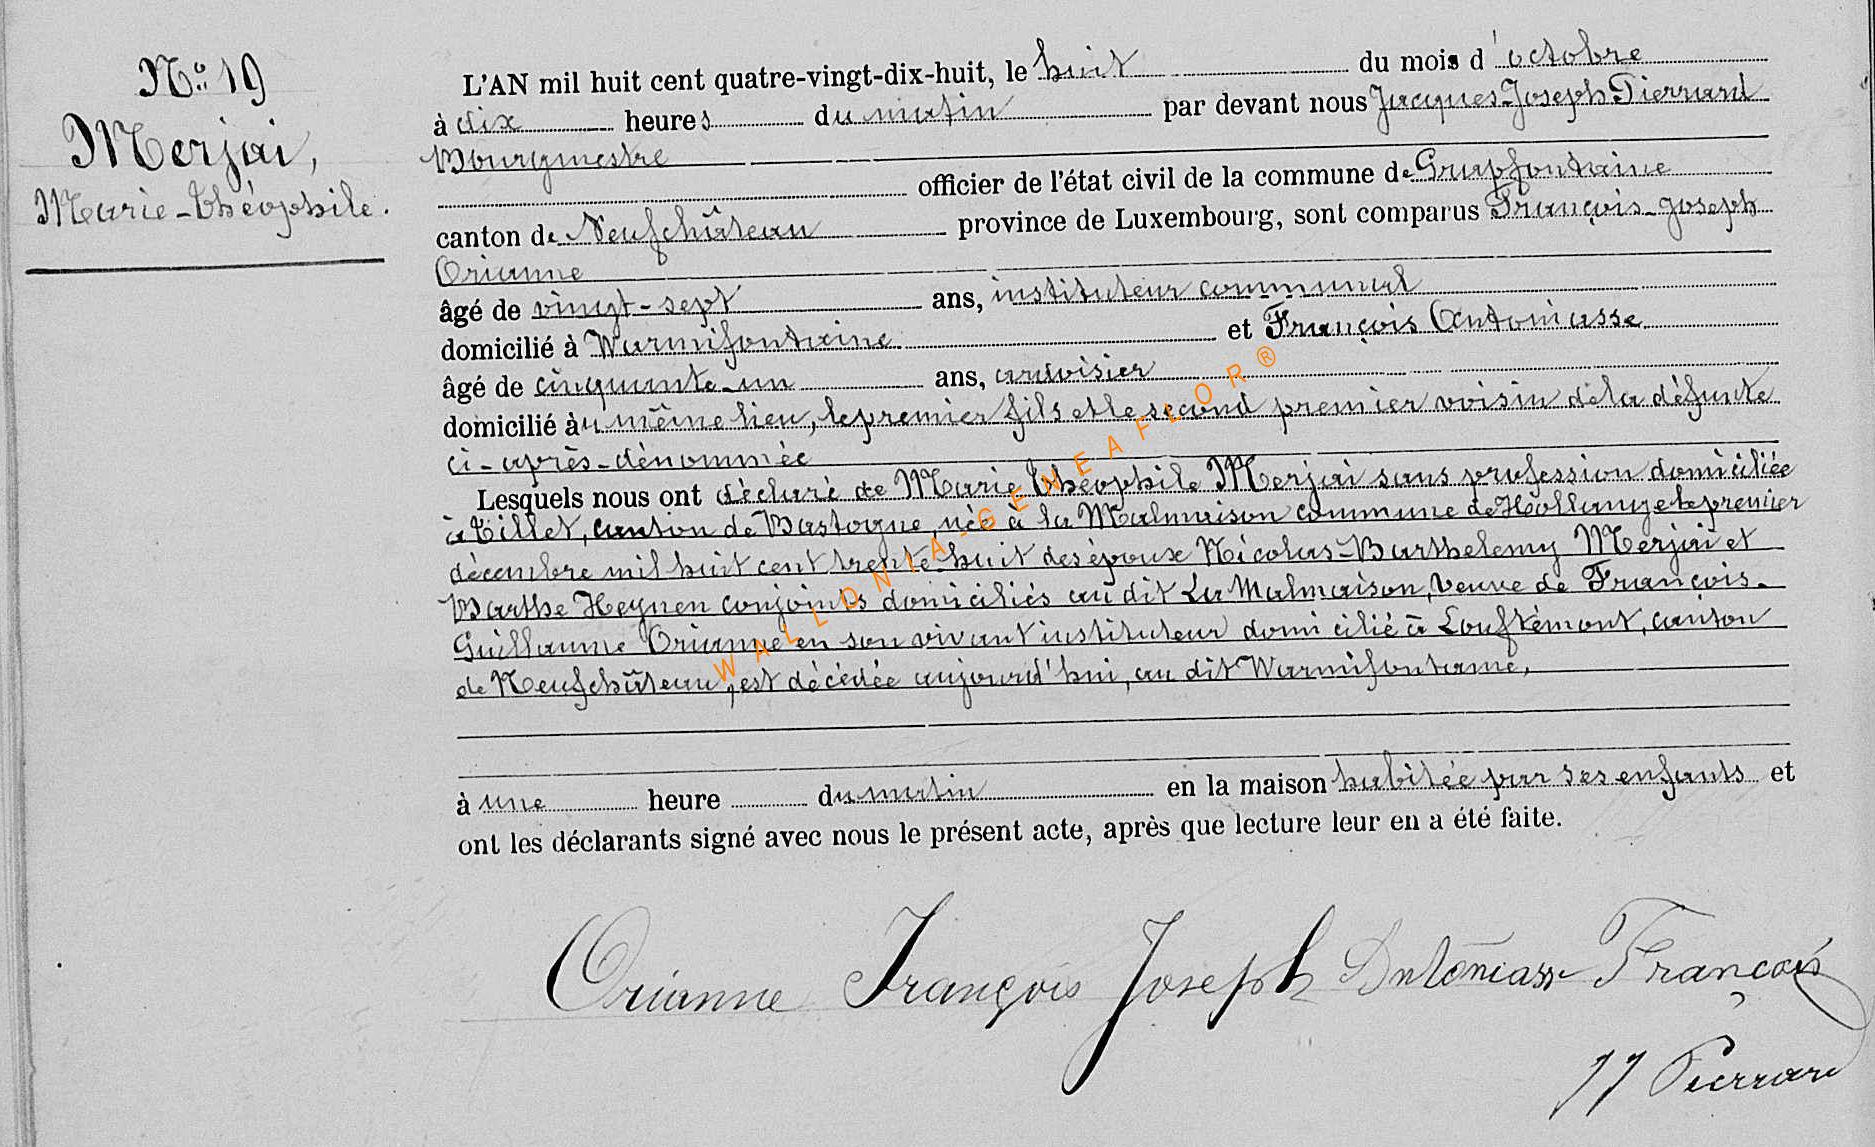 N° 19
Merjai,
Marie-Théophile.
L'AN mil huit cent quatre-vingt-dix-huit, le huit du mois d'octobre
à dix heures du matin par devant nous Jacques-Joseph Pierrard
Bourgmestre
officier de l'état civil de la commune de Grapfontaine
canton de Neufchâteau province de Luxembourg, sont comparus François-Joseph
Orianne
âgé de vingt-sept ans, instituteur communal
domicilié à Warmifontaine et François Antoniasse
âgé de cinquante-un ans, ardoisier
domicilié au même lieu, le premier fils et le second premier voisin de la défunte
ci-après-dénommée
Lesquels nous ont déclaré de Marie Théophile Merjai sans profession domiciliée
à Tillet, canton de Bastogne, née à la Malmaison commune de Hollange le premier
décembre mil huit cent trente-huit des époux Nicolas-Barthelemy Merjai et
Barthe Heynen conjoints domiciliés au dit La Malmaison, Veuve de François-
Guillaume Orianne en son vivant instituteur domicilié à Louftémont, canton
de Neufchâteau, est décédée aujourd'hui, au dit Warmifontaine,
à une heure du matin en la maison habitée par ses enfants et
ont les déclarants signé avec nous le présent acte, après que lecture leur en a été faite.
Orianne François Joseph Antoniasse François
JJ Pierrard
WALLONIA-GENEAFLOR®